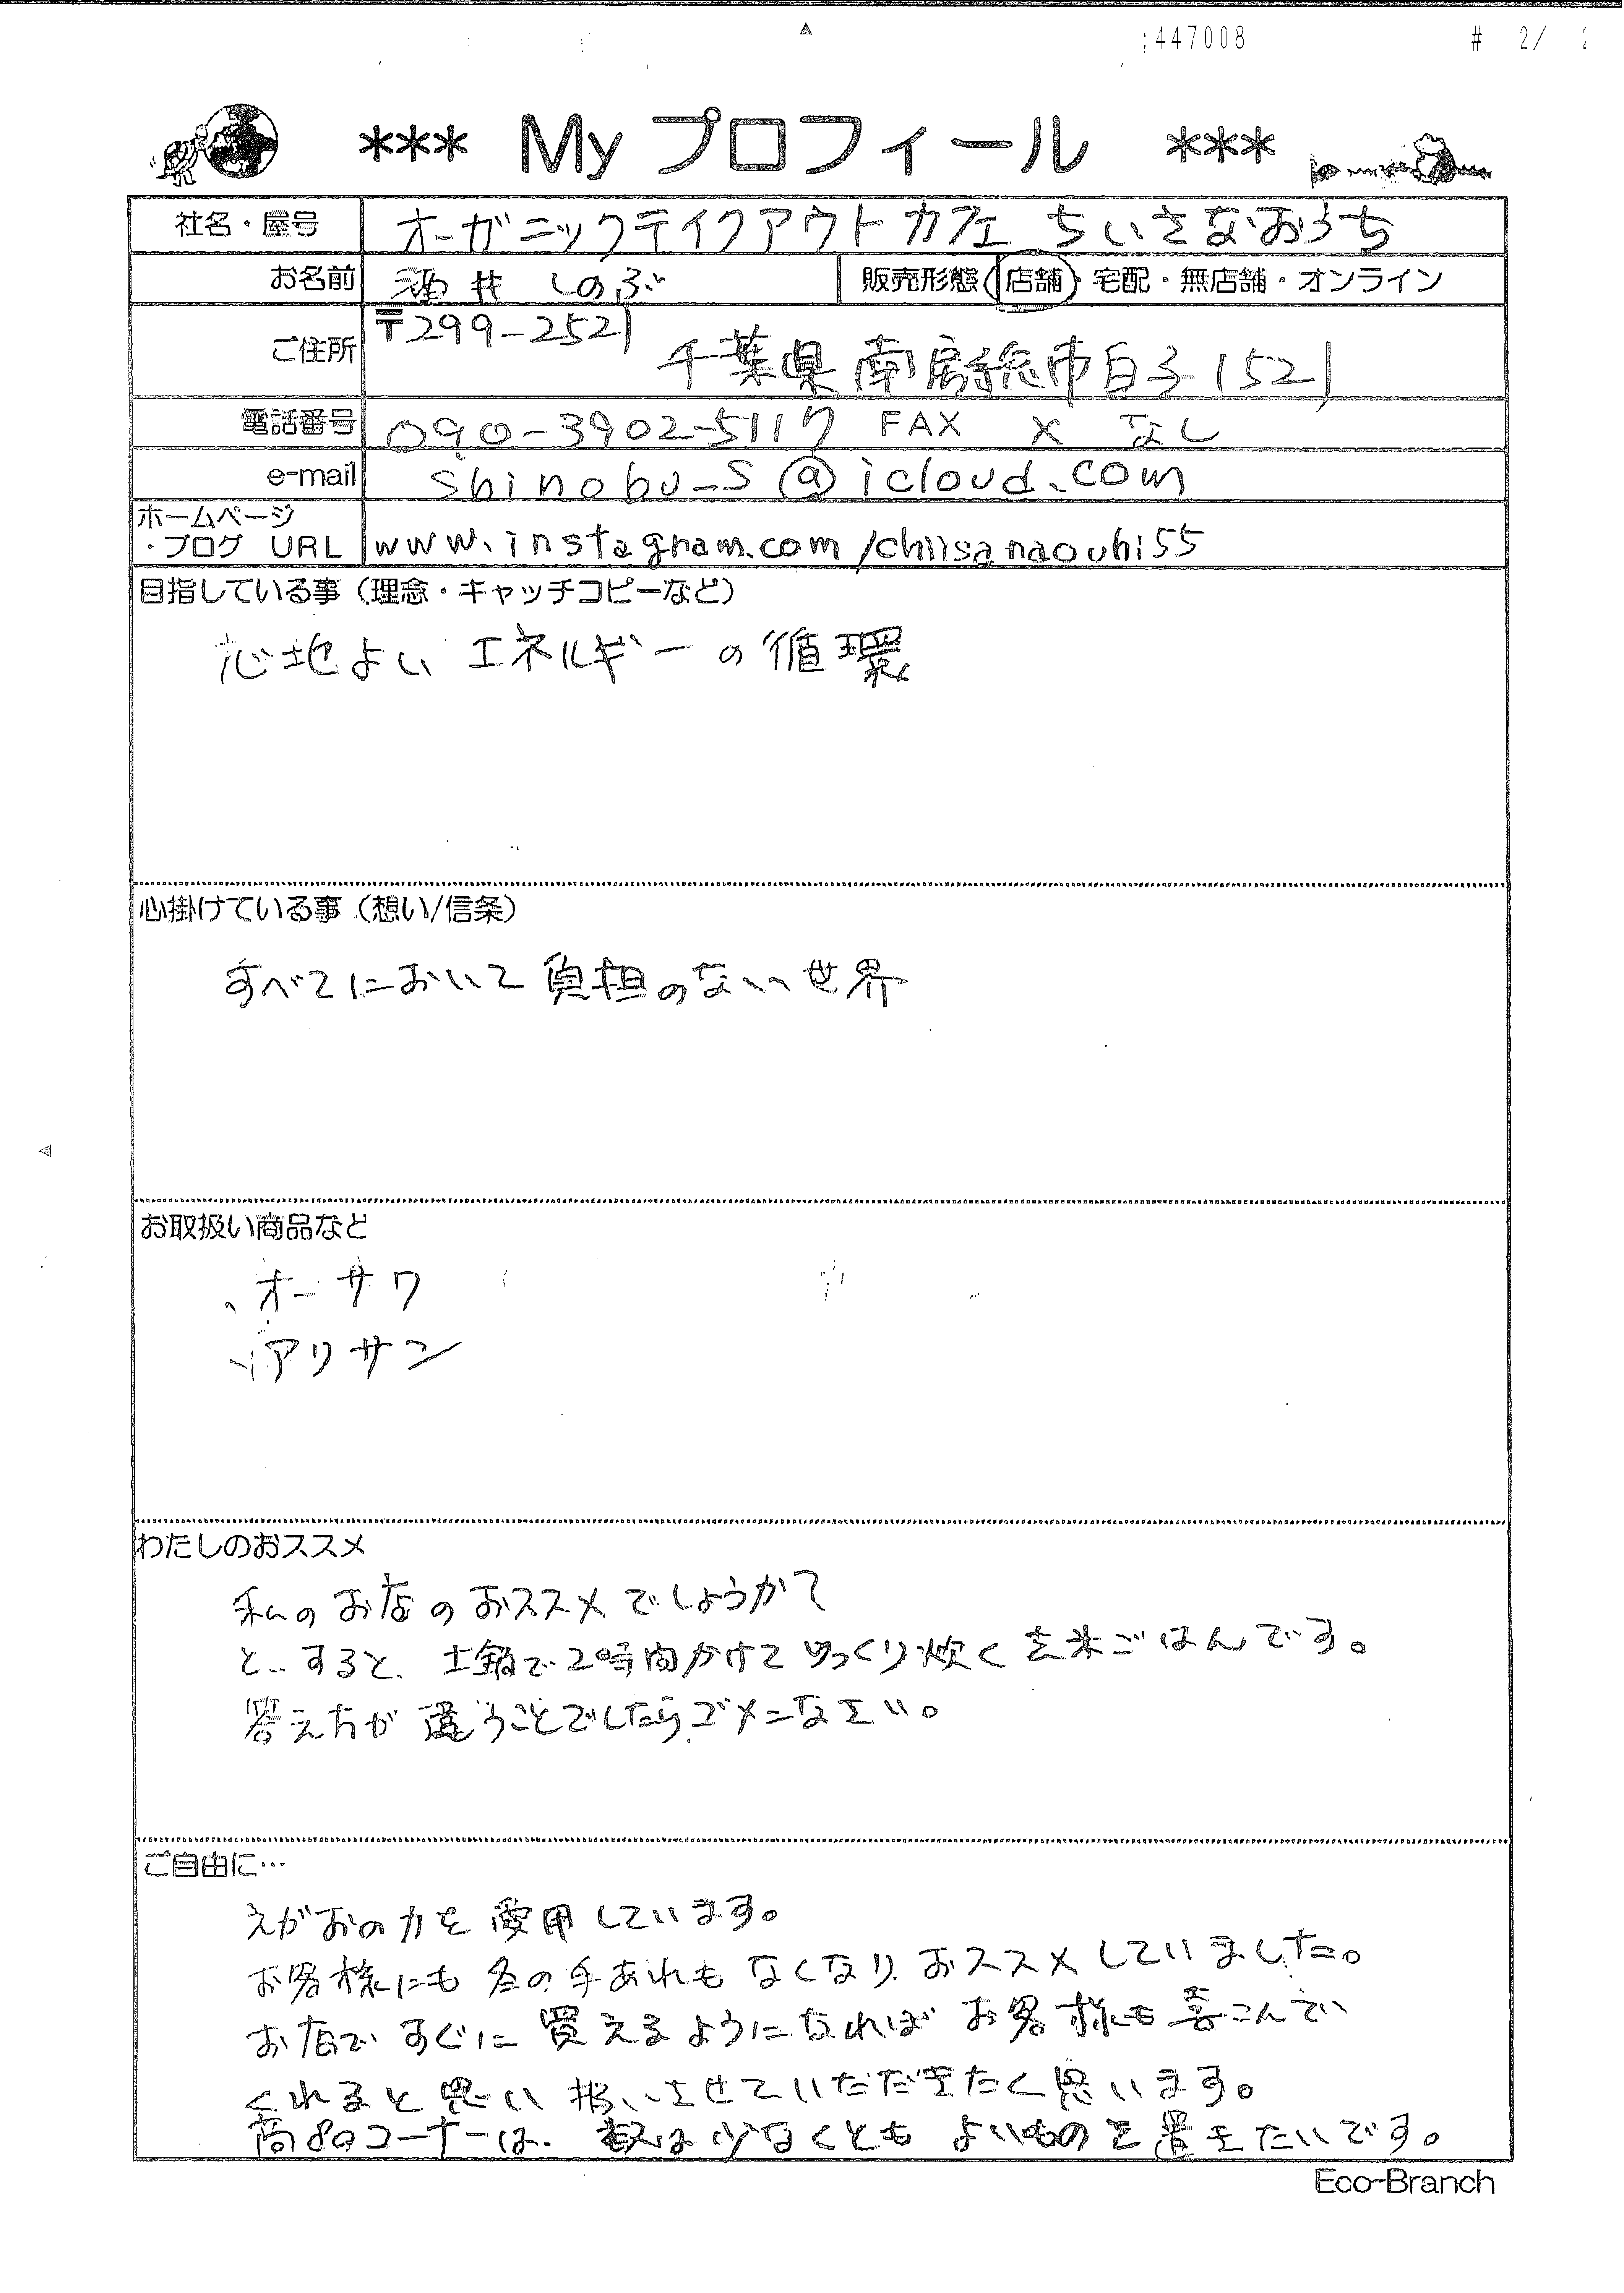 ;447008 # 2/
*** My プロフィール ***
社名・屋号 オーガニックテイクアウトカフェ ちいさなおうち
お名前 酒井 しのぶ 販売形態(店舗・宅配・無店舗・オンライン
ご住所 〒299-2521
千葉県南房総市白子1521
電話番号 090-3902-5117 FAX × なし
e-mail shinobu_s@icloud.com
ホームページ
・ブログ URL www.instagram.com/chiisanaouhi55
目指している事(理念・キャッチコピーなど)
心地よい エネルギーの循環
心掛けている事(想い/信条)
すべてにおいて負担のない世界
お取扱い商品など
、オーサワ
、アリサン
わたしのおススメ
私のお店のおススメでしょうか?
と..すると、土鍋で2時間かけてゆっくり炊く玄米ごはんです。
答え方が違うことでしたらゴメンなさい。
ご自由に…
えがおの力を愛用しています。
お客様にも冬の手あれもなくなり、おススメしていました。
お店ですぐに買えるようになればお客様も喜こんで
くれると思い扱いさせていただきたく思います。
商品コーナーは、数は少なくともよいものを置きたいです。
Eco-Branch